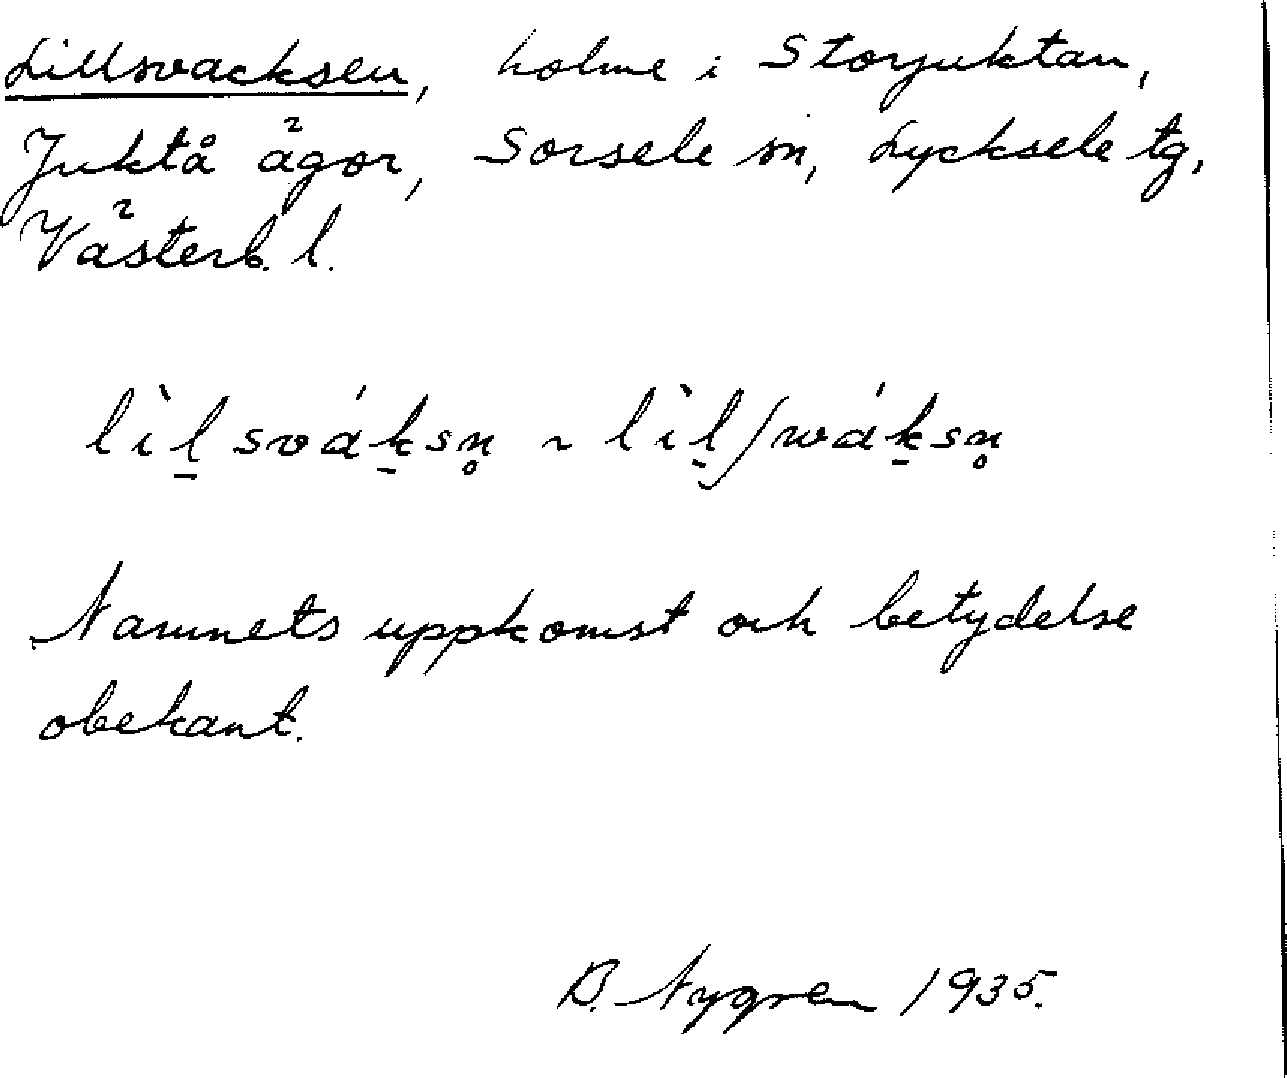 Lillsvacksen, holme i Storjuktan,
Juktå ägor, Sorsele sn, Lycksele tg,
Västerb. l.
lìl̠svák̠sn̥ ~ lìl̠ʃwák̠sn̥
Namnets uppkomst och betydelse
obekant.
B. Nygren 1935.